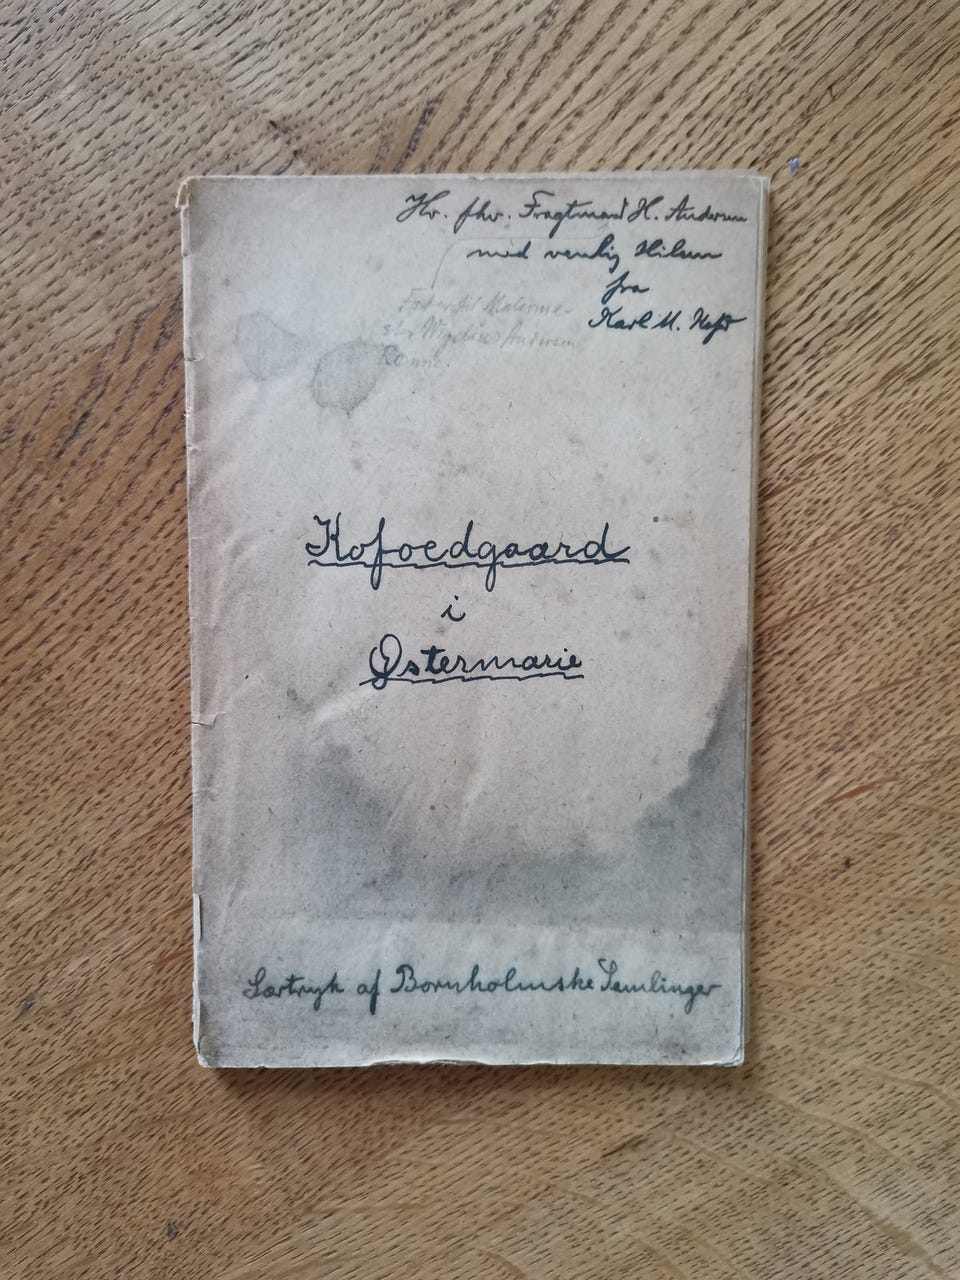 Hr. fhv. Fragtmand H. Andersen
med venlig Hilsen
fra
Karl M.
Fader til Malerme-
Andersen
Rønne.
Kofoedgaard
i
Østermarie
Særtryk af Bornholmske Samlinger